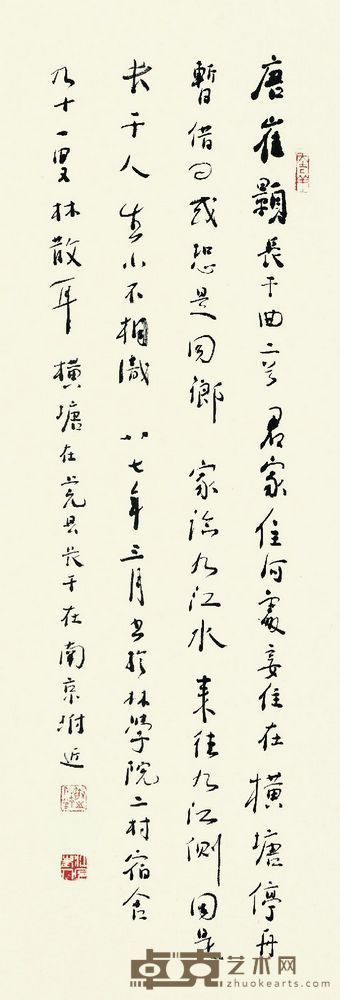 唐崔顥長干曲二首 君家住何處妾住在橫塘停舟
暫借问或恐是同鄉 家臨九江水 来往九江側 同是
长干人 生小不相識 八七年三月书於林學院二村宿舍
九十一叟林散耳 橫塘在 县长干在南京附近
卓克艺术网
www.zhuokearts.com